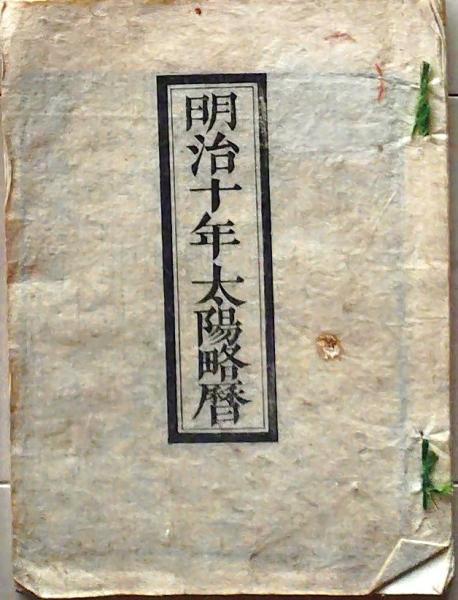 明治十年太陽略暦